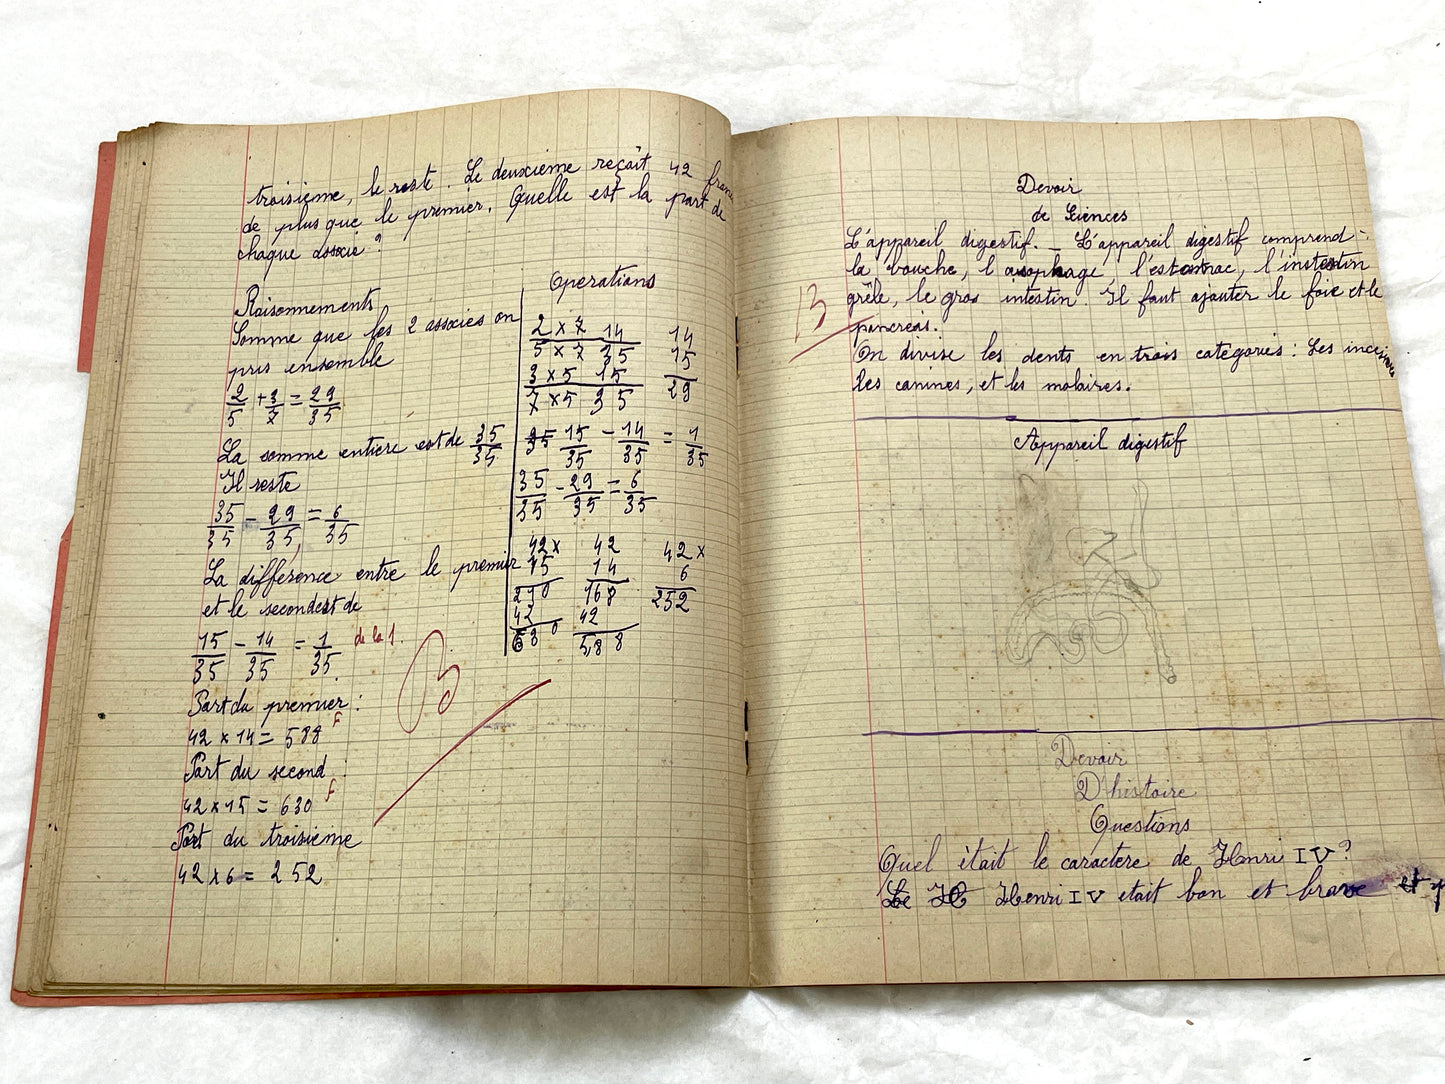 troisième, le reste. Le deuxième reçait 42 franc
de plus que le premier. Quelle est la part de
chaque associé ?
Raisonnements
Somme que les 2 associes on
pris ensemble
2/5 + 3/7 = 29/35
La somme entiere est de 35/35
Il reste
35/35 - 29/35 = 6/35
La difference entre le premier
et le second est de
15/35 - 14/35 = 1/35 de la 1.
Part du premier :
42 x 14 = 588 F
Part du second :
42 x 15 = 630 F
Part du troisieme
42 x 6 = 252
Operations
2 x 7 14 14
5 x 7 35 15
3 x 5 15 29
7 x 5 35
15/35 - 14/35 = 1/35
35/35 - 29/35 = 6/35
42 x 42 42 x
15 14 6
210 168 252
42 42
630 588
13
Devoir
de Siences
L'appareil digestif. _ L'appareil digestif comprend :
la bouche, l'œsophage, l'estomac, l'instestin
grêle, le gros intestin. Il faut ajouter le foie et le
pancréas.
On divise les dents en trois categories : Les incisives
les canines, et les molaires.
13
Appareil digestif
Devoir
D'histoire
Questions
Quel était le caractere de Henri IV ?
Le H Henri IV etait bon et brave et